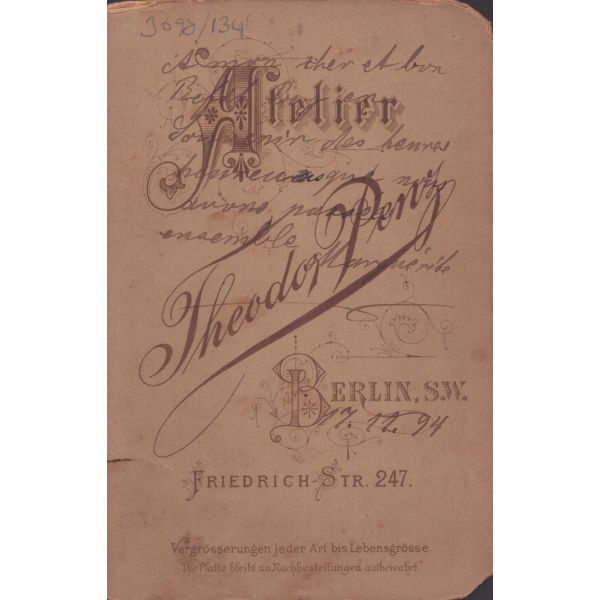 3698/134
A mon cher et bon
Atelier
en
Souvenir des heures
heureuses que nous
avons passées
ensemble
Marguerite
Theodor Penz
BERLIN, S.W.
17. 12. 94
FRIEDRICH-STR. 247.
Vergrösserungen jeder Art bis Lebensgrösse.
Die Platte bleibt zu Nachbestellungen aufbewahrt.